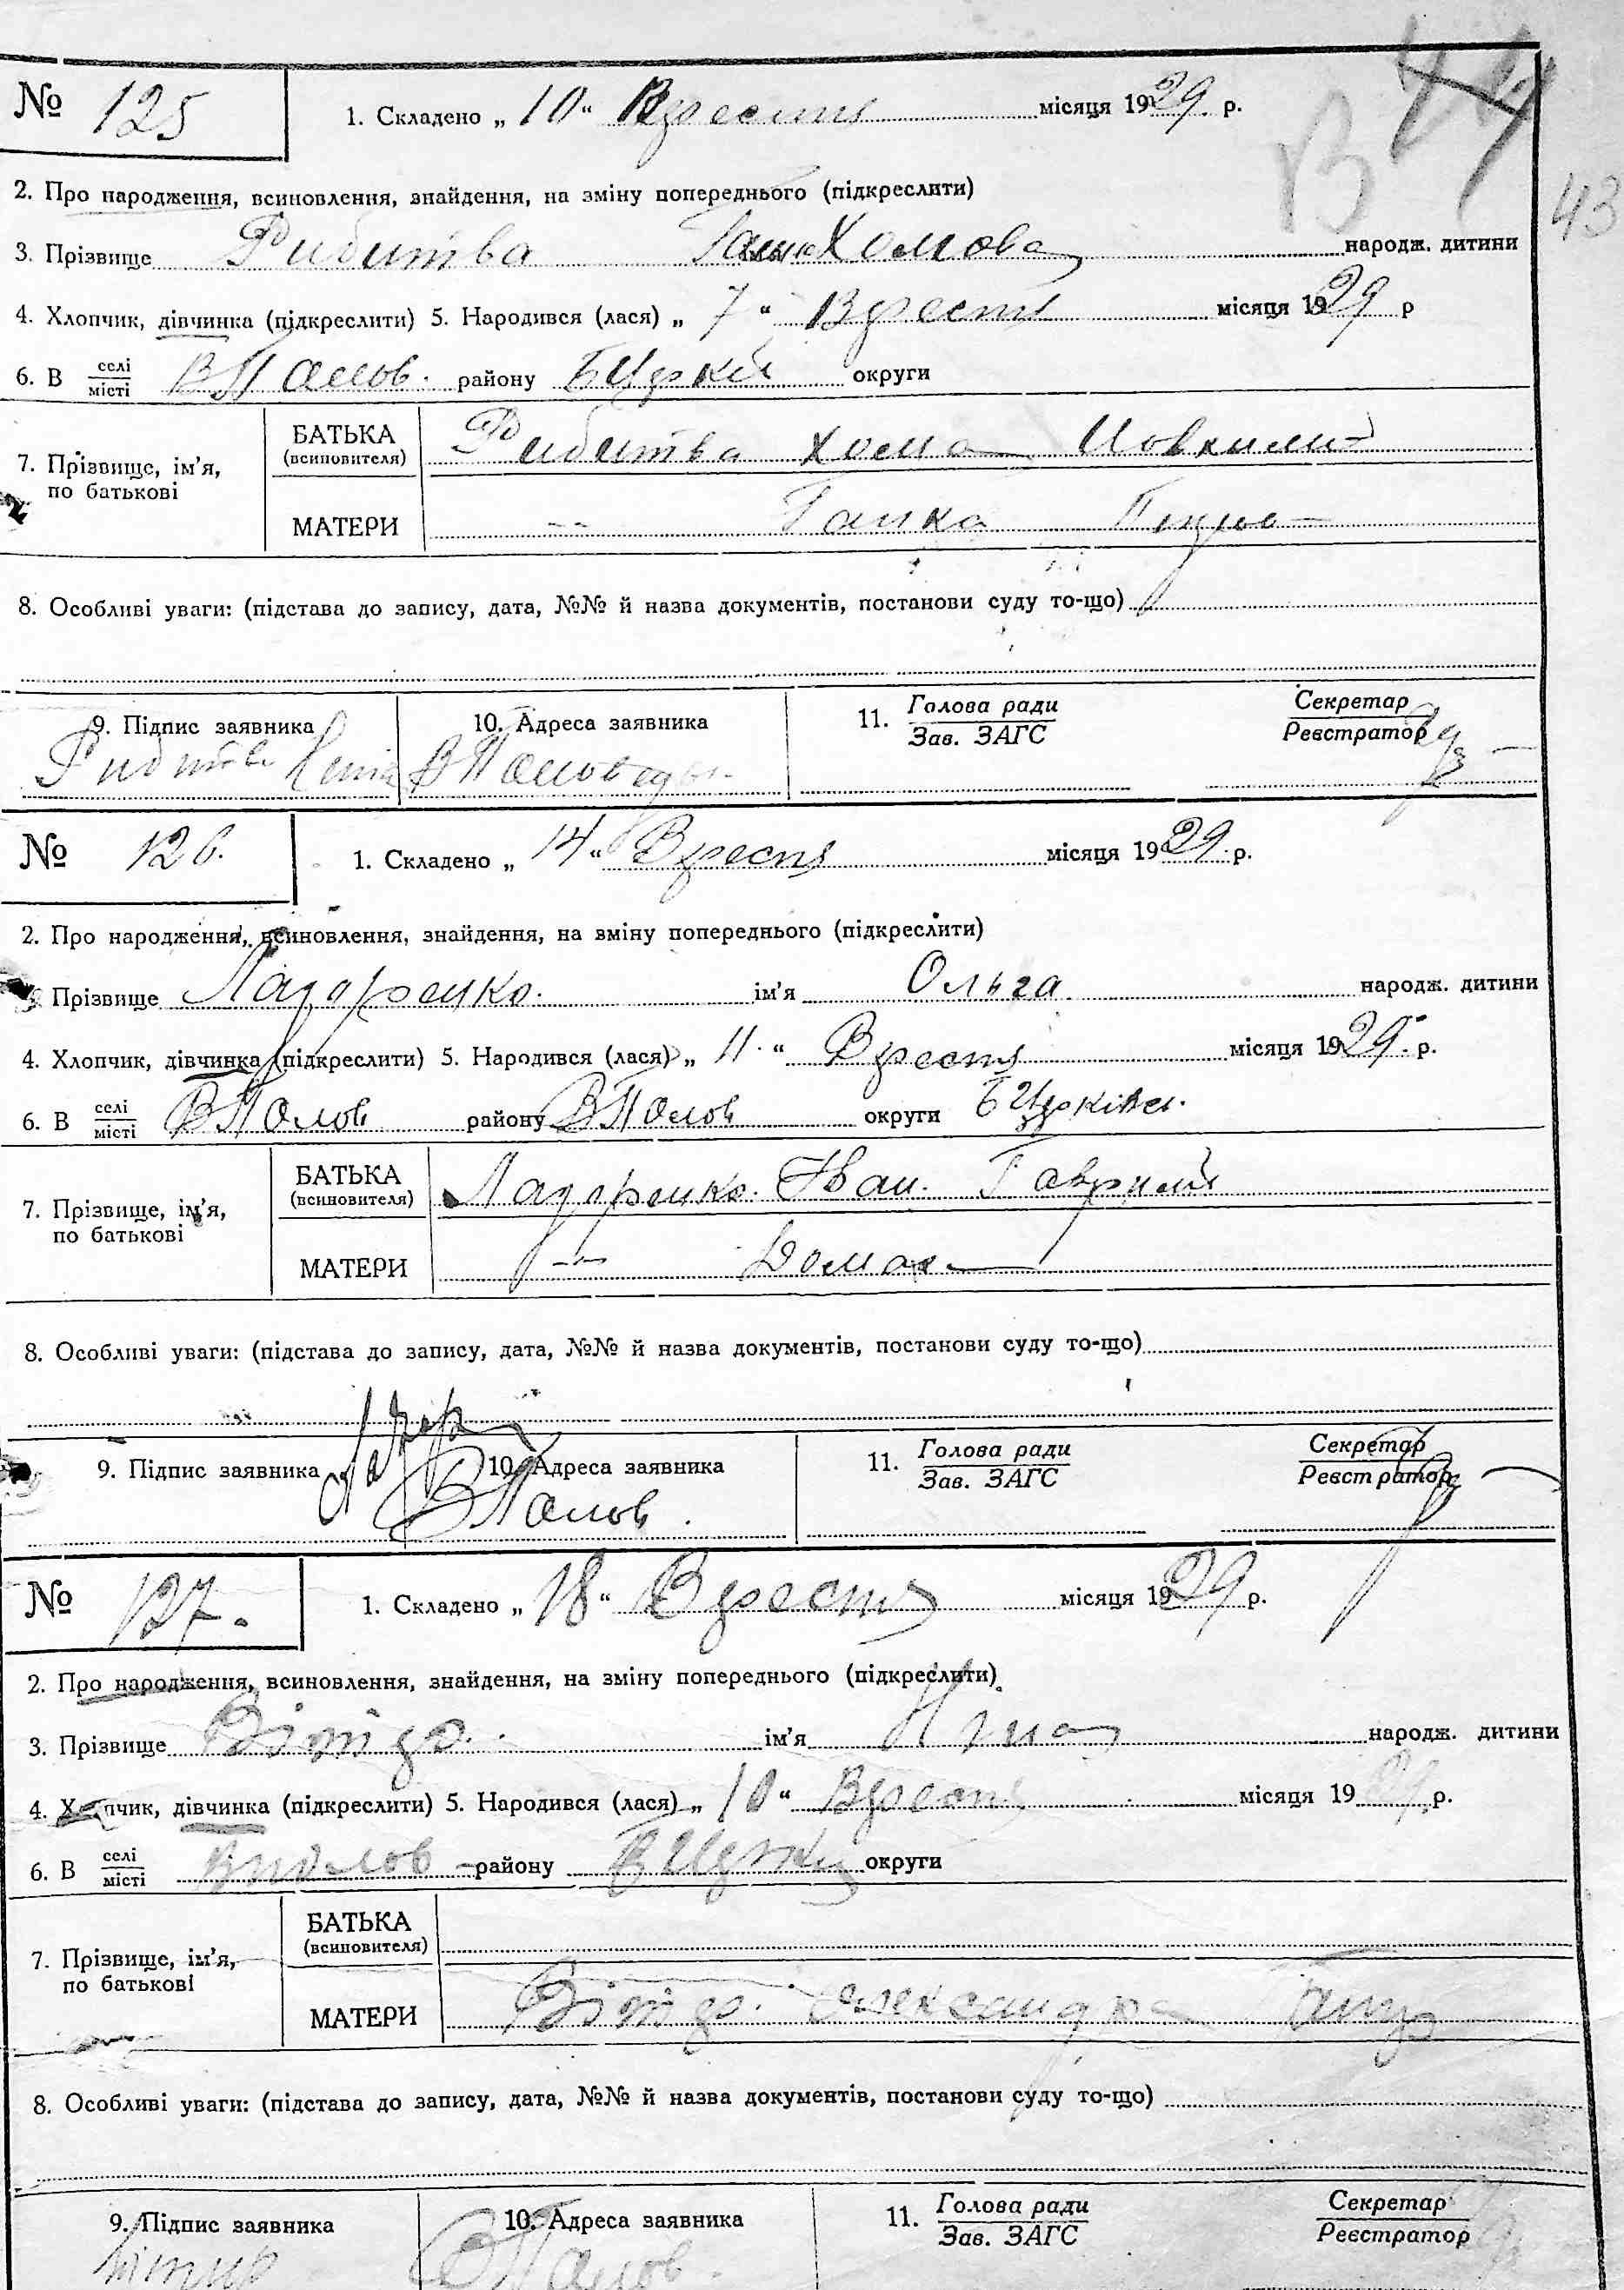 43
№ 125
1. Складено „ 10 “ Вересня місяця 1929. р.
2. Про народження, всиновлення, знайдення, на зміну попереднього (підкреслити)
3. Прізвище Рибитва Хомова народж. дитини
4. Хлопчик, дівчинка (підкреслити) 5. Народився (лася) „ 7 “ Вересня місяця 1929 р
6. В селі/місті ВПолов. району БЦерків округи
7. Прізвище, ім’я, по батькові
БАТЬКА (всиновителя) Рибитва Хома
МАТЕРИ -- Ганка
8. Особливі уваги: (підстава до запису, дата, №№ й назва документів, постанови суду то-що)
9. Підпис заявника 10. Адреса заявника 11. Голова ради/Зав. ЗАГС Секретар/Реєстратор
Рибитва
№ 126.
1. Складено „ 14 “ Вересня місяця 1929. р.
2. Про народження, всиновлення, знайдення, на зміну попереднього (підкреслити)
Прізвище Лазаренко. ім’я Ольга народж. дитини
4. Хлопчик, дівчинка (підкреслити) 5. Народився (лася) „ 11. “ Вересня місяця 1929. р.
6. В селі/місті ВПолов району ВПолов округи БЦерківс.
7. Прізвище, ім’я, по батькові
БАТЬКА (всиновителя) Лазаренко. Іван. Гаврилів
МАТЕРИ -- Домаха
8. Особливі уваги: (підстава до запису, дата, №№ й назва документів, постанови суду то-що)
9. Підпис заявника 10. Адреса заявника 11. Голова ради/Зав. ЗАГС Секретар/Реєстратор
ВПолов.
№ 127.
1. Складено „ 18 “ Вересня місяця 1929 р.
2. Про народження, всиновлення, знайдення, на зміну попереднього (підкреслити)
3. Прізвище ім’я Ніна народж. дитини
4. Хлопчик, дівчинка (підкреслити) 5. Народився (лася) „ 10 “ Вересня місяця 1929. р.
6. В селі/місті ВПолов району БЦеркв округи
7. Прізвище, ім’я, по батькові
БАТЬКА (всиновителя)
МАТЕРИ Олександра
8. Особливі уваги: (підстава до запису, дата, №№ й назва документів, постанови суду то-що)
9. Підпис заявника 10. Адреса заявника 11. Голова ради/Зав. ЗАГС Секретар/Реєстратор
ВПолов.